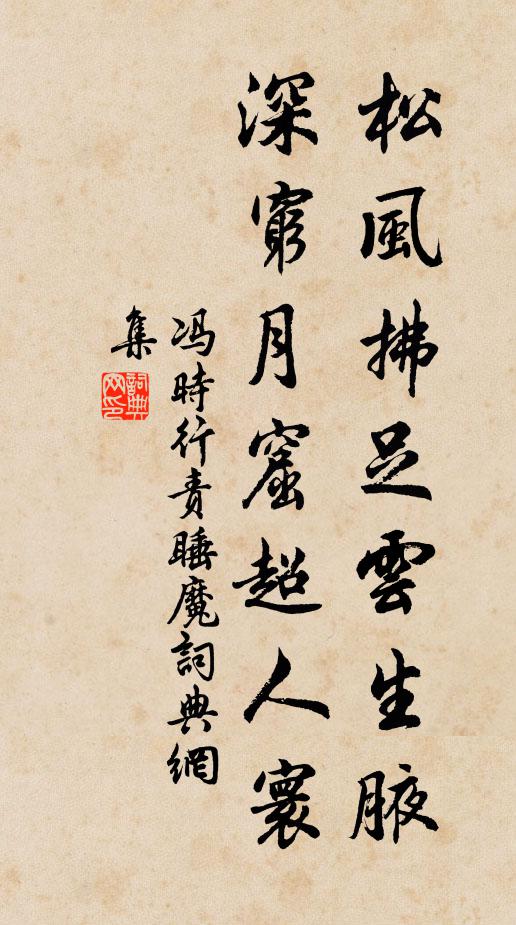 松風拂足雲生腋
深窮月窟超人寰
冯時行責睡魔詞典網
集
詞典
网印